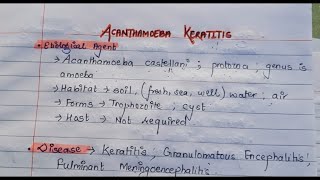 ACANTHAMOEBA KERATITIS
• Etiological Agent
→ Acanthamoeba castellani ; protozoa ; genus is
amoeba
→ Habitat → soil, (fresh, sea, well) water ; air
→ Forms → Trophozoite ; cyst
→ Host → Not required
• Disease → Keratitis ; Granulomatous Encephalitis ;
Fulminant Meningoencephalitis.